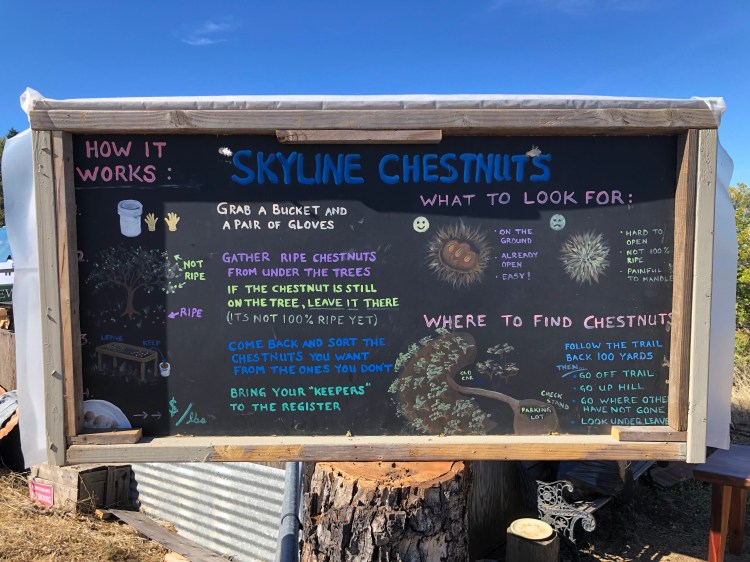 HOW IT
WORKS:
SKYLINE CHESTNUTS
GRAB A BUCKET AND
A PAIR OF GLOVES
NOT
RIPE
RIPE
GATHER RIPE CHESTNUTS
FROM UNDER THE TREES
IF THE CHESTNUT IS STILL
ON THE TREE, LEAVE IT THERE
(ITS NOT 100% RIPE YET)
LEAVE
KEEP
COME BACK AND SORT THE
CHESTNUTS YOU WANT
FROM THE ONES YOU DON'T
$/lbs
BRING YOUR "KEEPERS"
TO THE REGISTER
WHAT TO LOOK FOR:
• ON THE
GROUND
• ALREADY
OPEN
• EASY!
• HARD TO
OPEN
• NOT 100%
RIPE
• PAINFUL
TO HANDLE
WHERE TO FIND CHESTNUTS
OLD
CAR
CHECK
STAND
PARKING
LOT
FOLLOW THE TRAIL
BACK 100 YARDS
THEN...
• GO OFF TRAIL
• GO UP HILL
• GO WHERE OTHERS
HAVE NOT GONE
• LOOK UNDER LEAVE